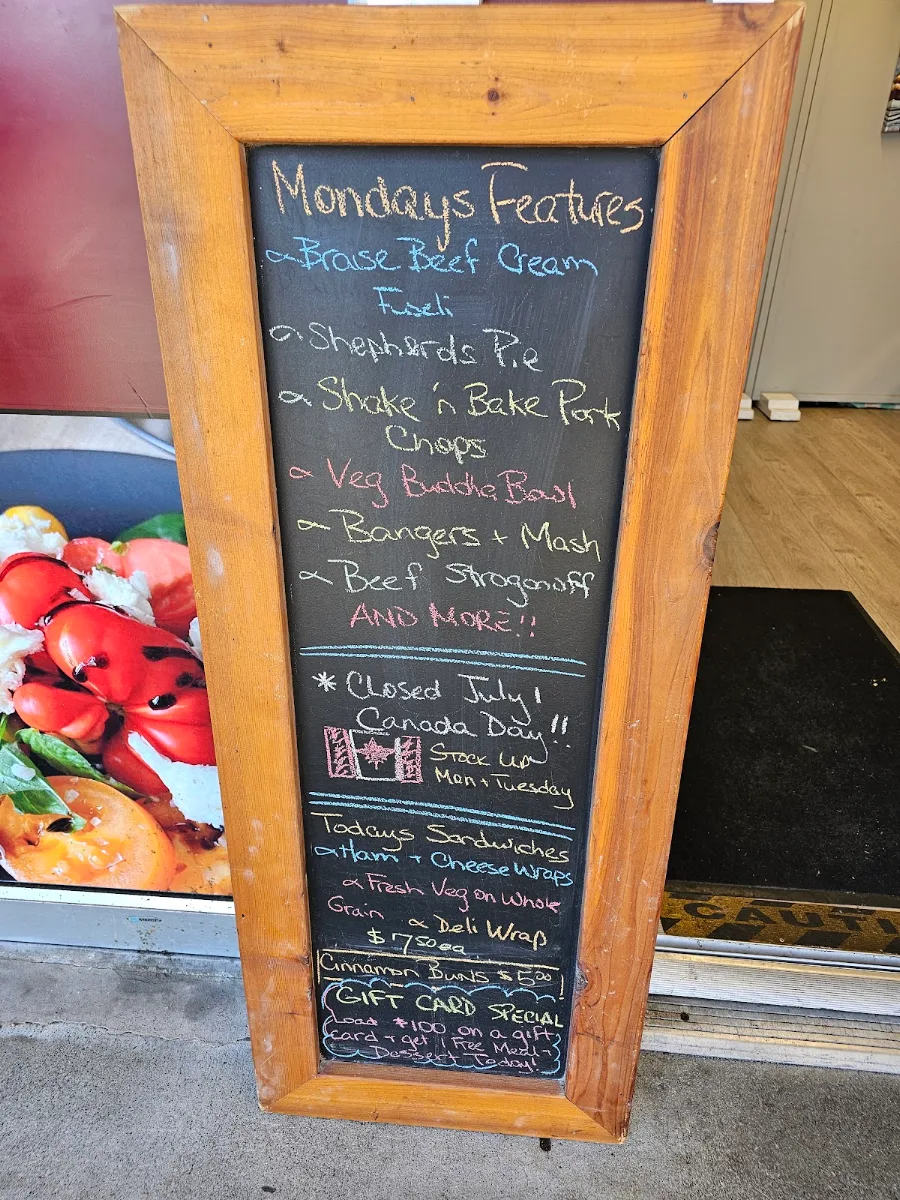 Mondays Features
∝ Braise Beef Cream
Fuseli
∝ Shepherds Pie
∝ Shake 'n Bake Pork
Chops
∝ Veg Buddha Bowl
∝ Bangers + Mash
∝ Beef Strogonoff
AND MORE!!
* CLOSED July 1
Canada Day!!
STOCK UP
Mon + Tuesday
Todays Sandwiches
∝ Ham + Cheese Wraps
∝ Fresh Veg on Whole
Grain ∝ Deli Wrap
$7.50 ea
Cinnamon Buns $5.00
GIFT CARD SPECIAL
Load $100 on a gift
card + get 1 Free Meal +
Dessert Today!
CAUTI